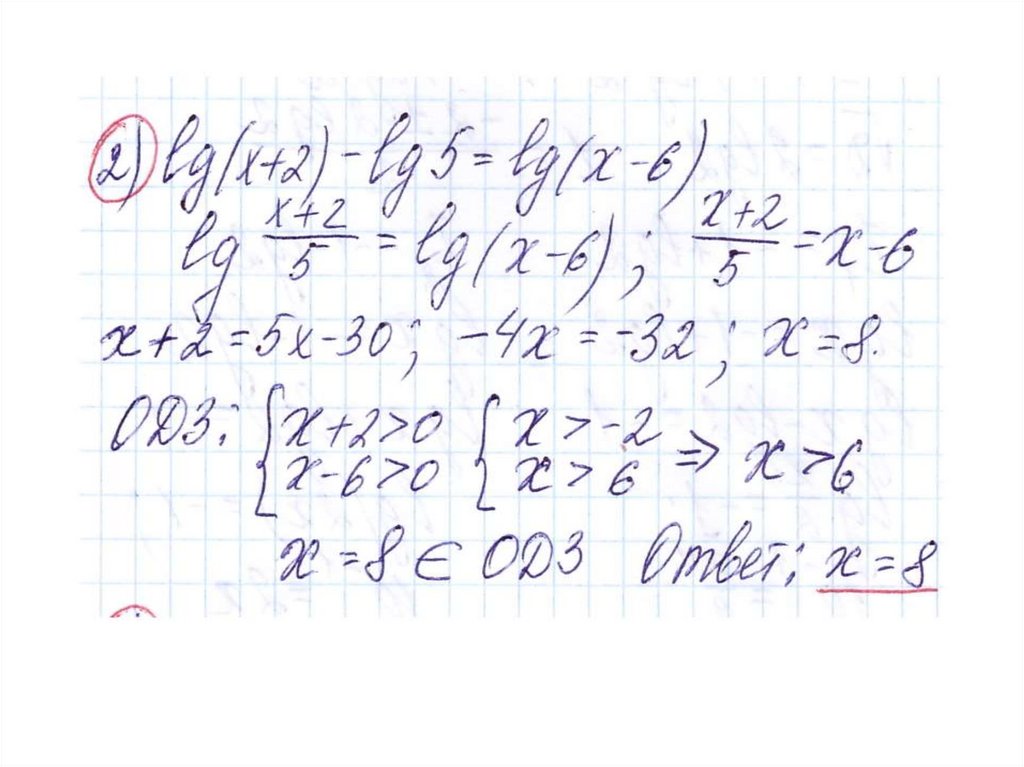 2) lg(x+2) - lg 5 = lg(x-6)
lg (x+2)/5 = lg(x-6); (x+2)/5 = x-6
x+2 = 5x-30; -4x = -32; x = 8.
ОДЗ: { x+2>0 { x>-2 => x>6
x-6>0 x>6
x = 8 ∈ ОДЗ Ответ: x = 8